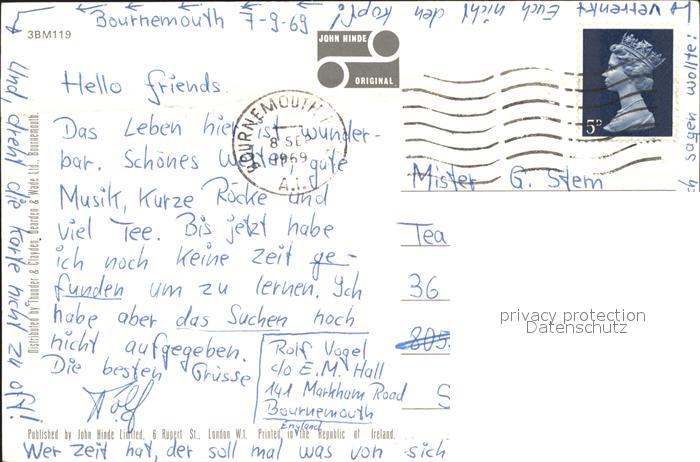 Bournemouth 7-9-69
3BM119
JOHN HINDE
ORIGINAL
Hello friends.
BOURNEMOUTH
8 SEP
1969
A.
5D
Das Leben hier ist wunder-
bar. Schönes Wetter, gute
Musik, Kurze Röcke und
viel Tee. Bis jetzt habe
ich noch keine Zeit ge-
funden um zu lernen. Ich
habe aber das Suchen noch
nicht aufgegeben.
Die besten Grüsse
Rolf
Rolf Vogel
c/o E.M. Hall
141 Markham Road
Bournemouth
England
Mister G. Stern
Tea
36
805
S
privacy protection
Datenschutz
Distributed by Thunder & Clayden, Dearden & Wade Ltd., Bournemouth.
Published by John Hinde Limited, 6 Rupert St., London W.1. Printed in the Republic of Ireland.
Wer Zeit hat, der soll mal was von sich
verrenkt Euch nicht den Kopf!
Und, dreht die Karte nicht zu oft!